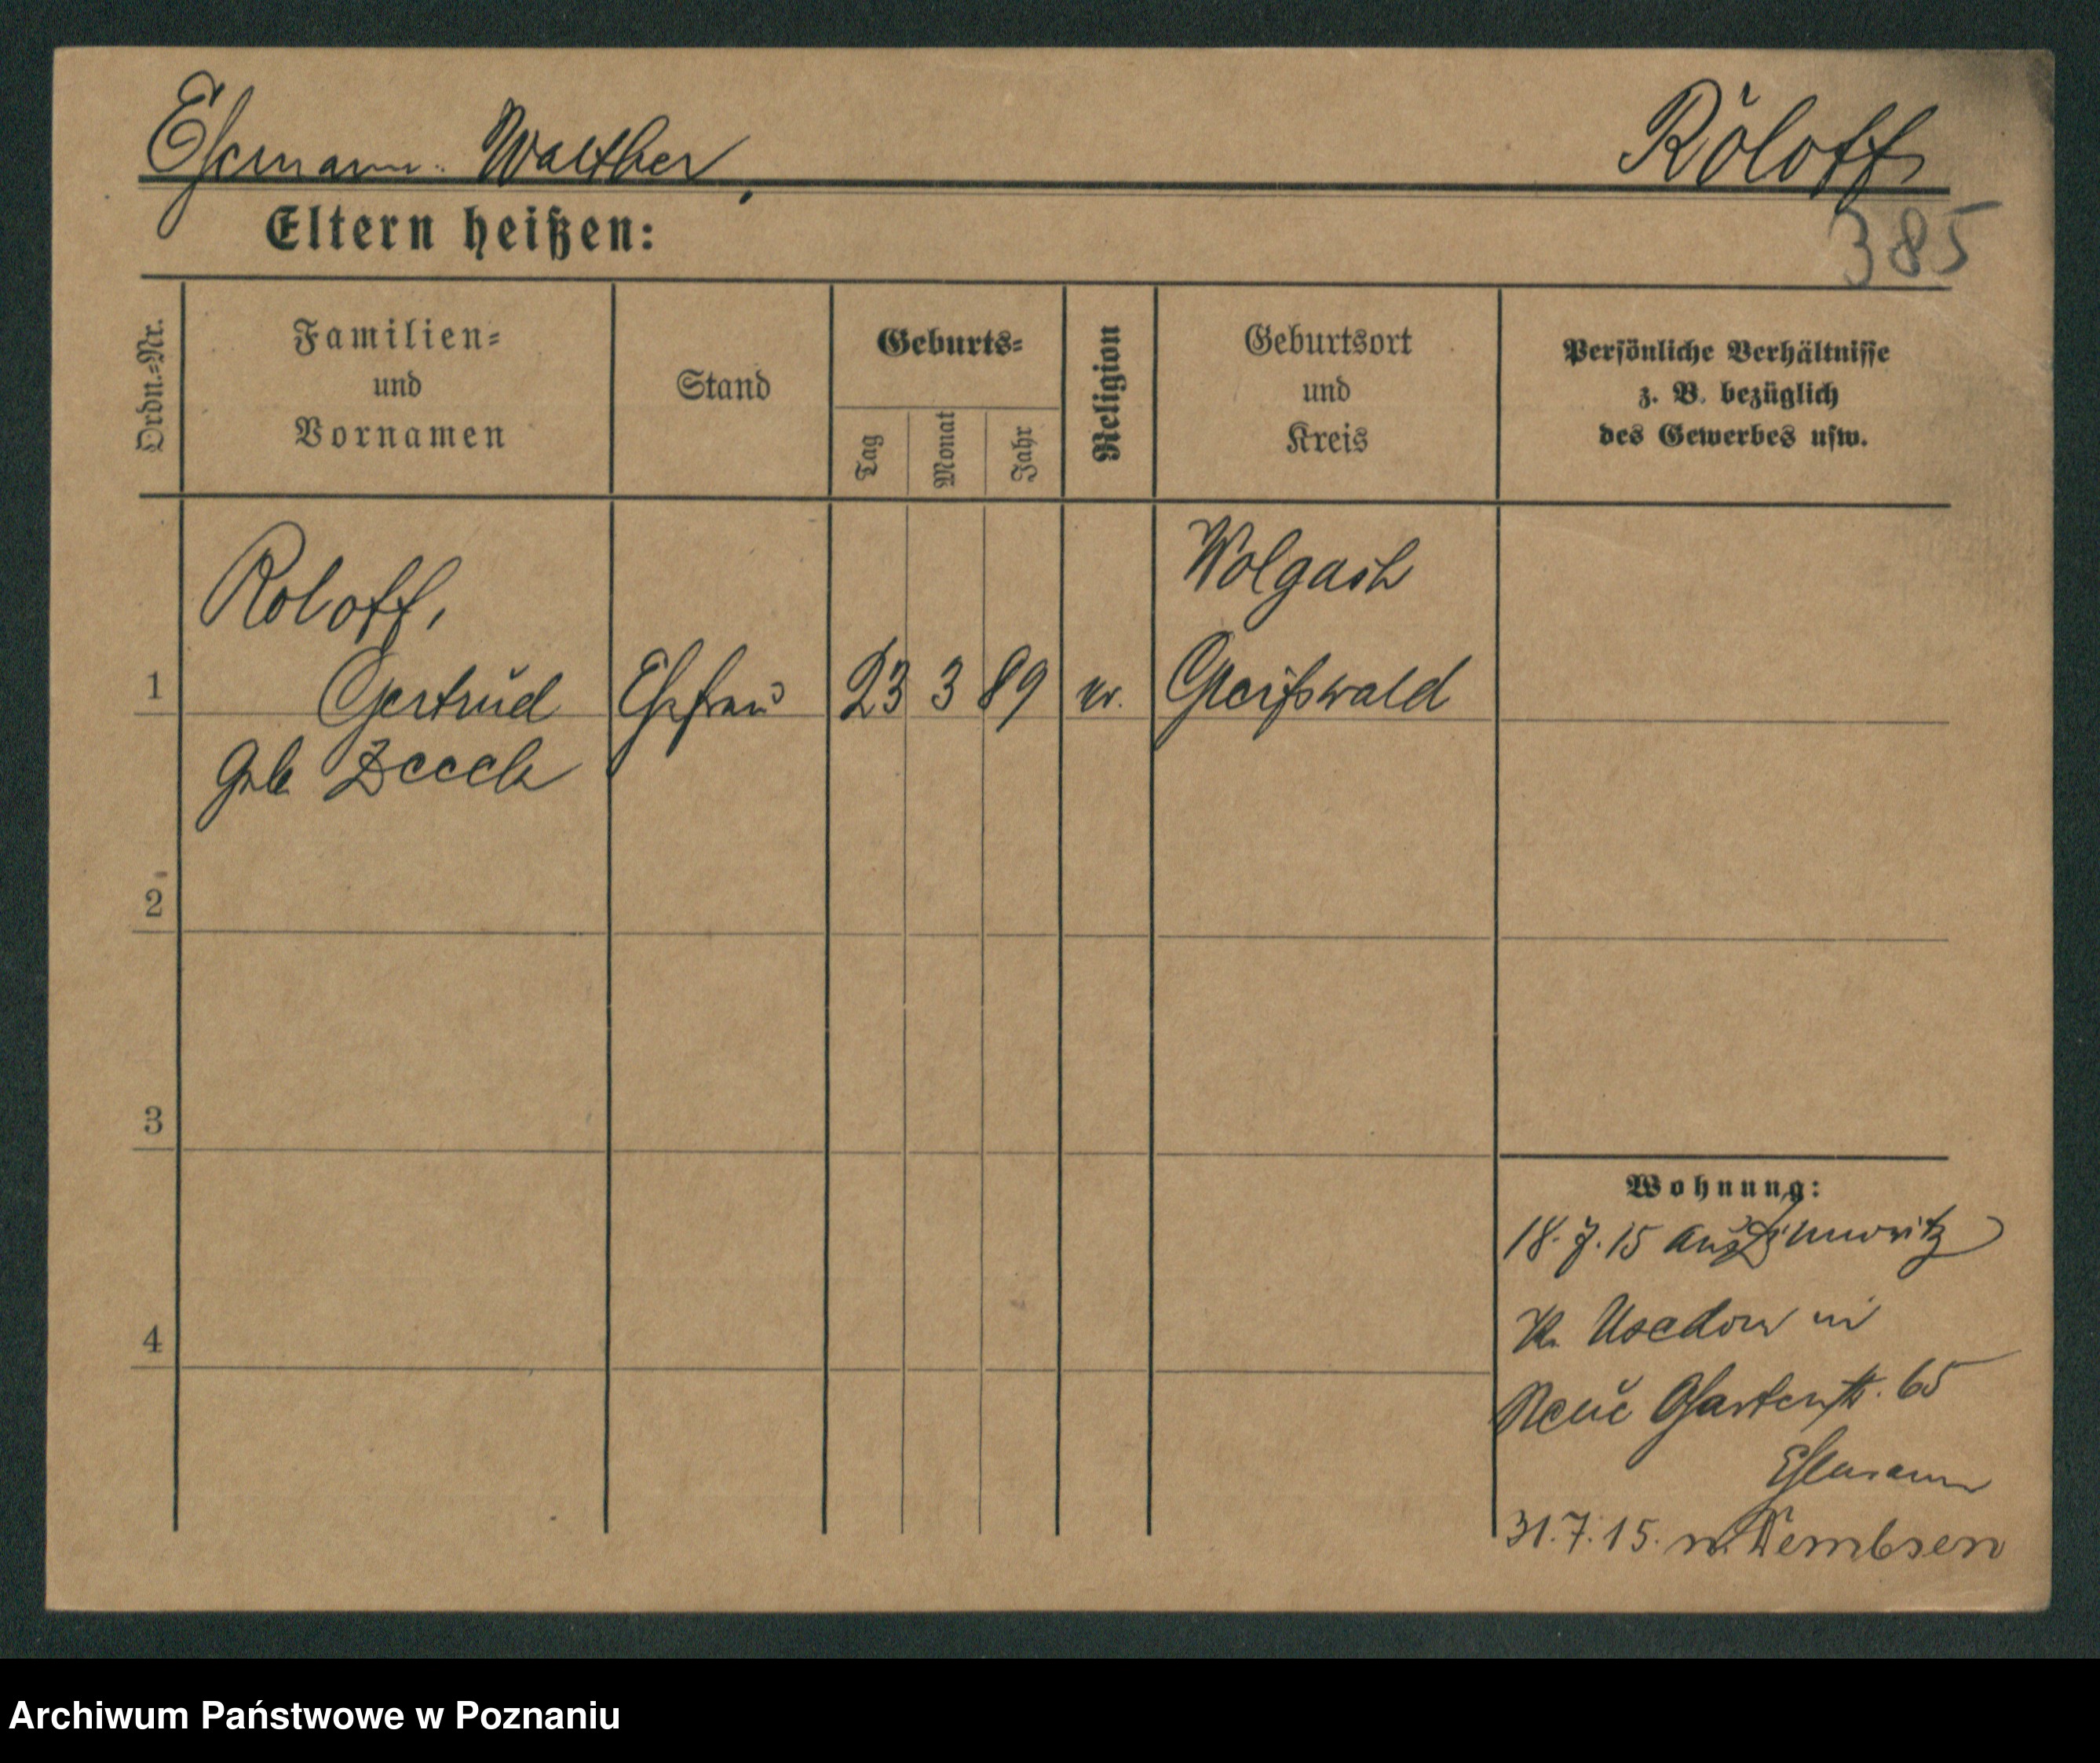 Ehemann: Walther, Röloff
385
Eltern heißen:
Ordn.=Nr.
Familien=
und
Vornamen
Stand
Geburts=
Tag
Monat
Jahr
Religion
Geburtsort
und
Kreis
Persönliche Verhältnisse
z. B. bezüglich
des Gewerbes usw.
Roloff,
Wolgast
1 Gertrud Ehefrau 23 3 89 ev. Greifswald
Geb. Zeeck
2
3
4
Wohnung:
18.7.15 aus Zinnowitz
Kr. Usedom in
Neue Gartenstr. 65
Ehemann
31.7.15. n. Dembsen
Archiwum Państwowe w Poznaniu